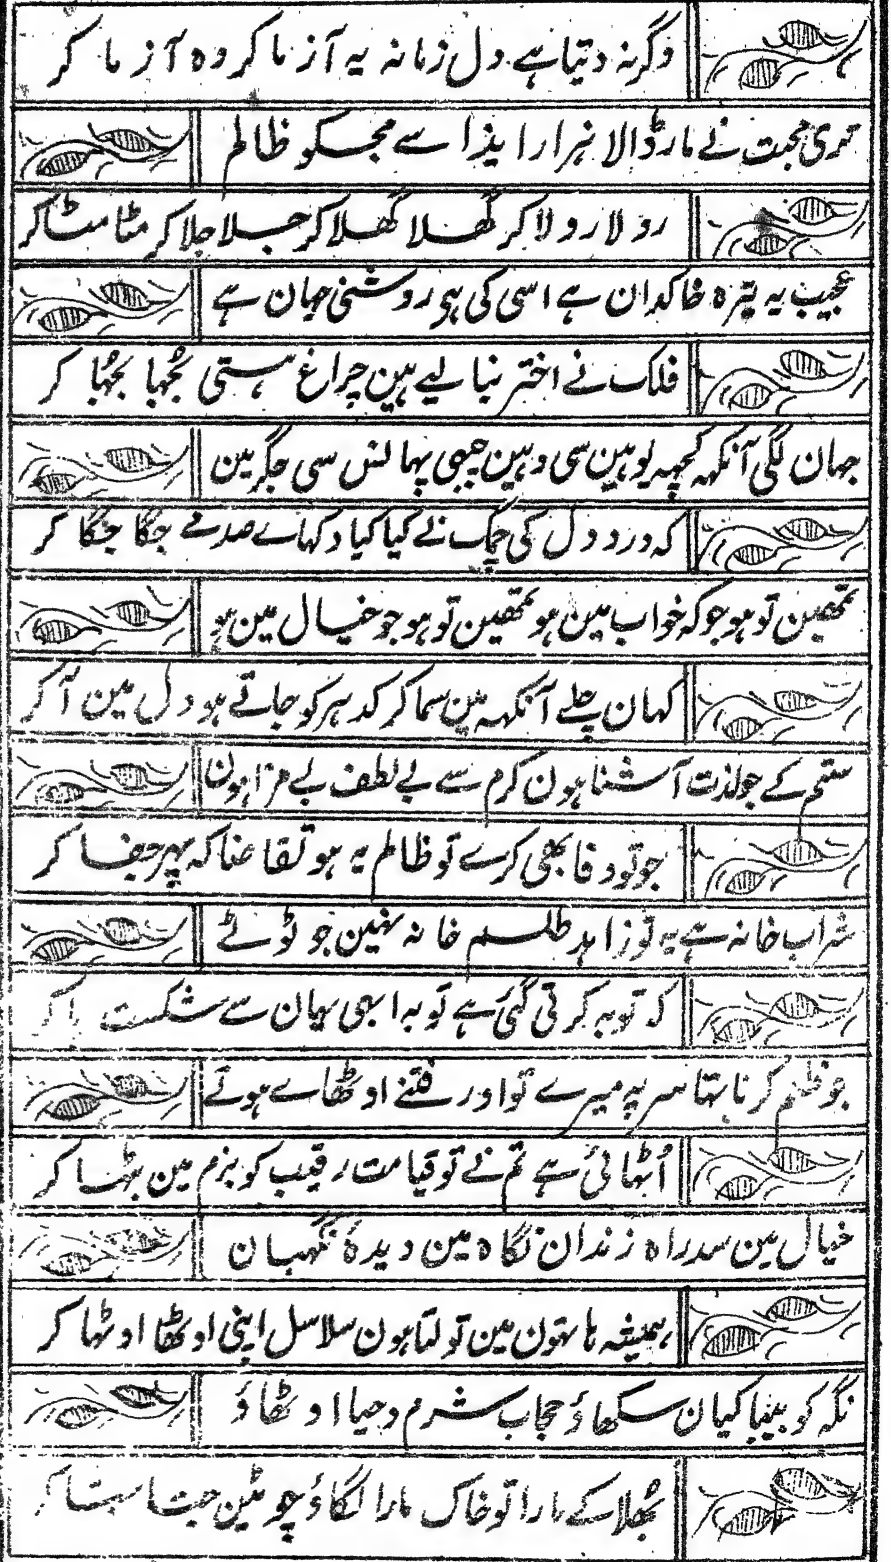 وگرنہ دیتا ہے دل زمانہ یہ آزما کر وہ آزما کر
تری محبت نے مار ڈالا ہزار ایذا سے مجسکو ظالم
رولا رولا کر گھلا گھلا کر جلا جلا کر مٹا مٹا کر
عجیب یہ تیرہ خاکدان ہے اسی کی ہو روشنی جہان ہے
فلک نے اختر بنا لیے ہین چراغ ہستی بجُہا بجُہا کر
جہان لگی آنکہہ کچہہ یوہین سی وہین چبھی پہانس سی جگر مین
کہ درد دل کی چمک نے کیا کیا دکہاے صدمے جگا جگا کر
تمھین تو ہو جو کہ خواب مین ہو تمھین تو ہو جو خیال مین ہو
کہان چلے آنکہہ مین سما کر کدہر کو جاتے ہو دل مین آ کر
ستم کے جو لذت آشنا ہون کرم سے بے لطف بے مزا ہون
جو تو وفا بھی کرے تو ظالم یہ ہو تقاضا کہ پہر جفا کر
شراب خانہ ہے یہ تو زاہد طلسم خانہ نہین جو ٹوٹے
کہ توبہ کر تی گئی ہے توبہ ابھی یہان سے شکست پا کر
جو ظلم کرنا تہا سر پہ میرے تو اور فتنے اوٹھاے ہوتے
اُٹہائی ہے تم نے تو قیامت رقیب کو بزم مین بٹہا کر
خیال مین سدراہ زندان نگاہ مین دیدۂ نگہبان
ہمیشہ ہاتہون مین تولتا ہون سلاسل اپنی اوٹھا اوٹہا کر
نگہ کو بیباکیان سکھاؤ حجاب شرم و حیا اوٹھاؤ
بھُلا کے مارا تو خاک مارا لگاؤ چوٹین جتا جتا کر